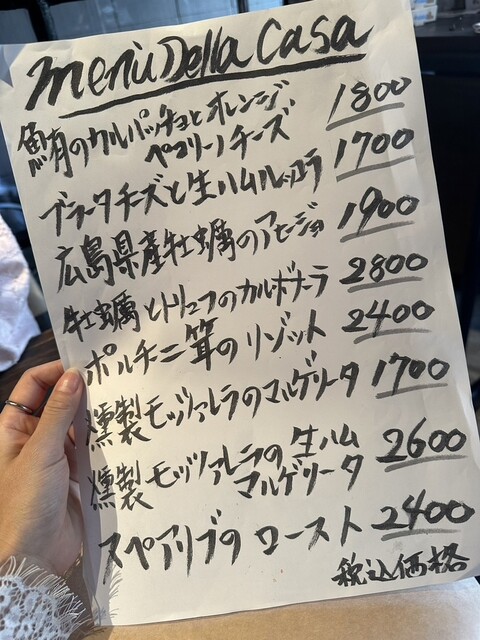 Menù Della Casa
鮪のカルパッチョとオレンジ、 1800
ペコリーノチーズ
ブラータチーズと生ハムルッコラ 1700
広島県産牡蠣のアヒージョ 1900
牡蠣とトリュフのカルボナーラ 2800
ポルチーニ茸のリゾット 2400
燻製モッツァレラのマルゲリータ 1700
燻製モッツァレラの生ハム 2600
マルゲリータ
スペアリブのロースト 2400
税込価格